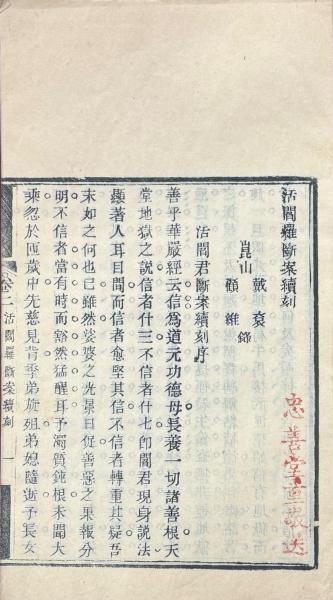 活閻羅斷案續刻
戴袞
崑山
顧維錄
活閻君斷案續刻序
善乎華嚴經云信爲道元功德母長養一切諸善根天
堂地獄之說信者什三不信者什七卽閻君現身說法
顯著人耳目間而信者愈堅其信不信者轉重其疑吾
末如之何也已雖然娑婆之光景日促善惡之果報分
明不信者當有時而豁然猛醒耳予濁質鈍根未聞大
乘忽於匝歲中先慈見背季弟旋殂弟媳隨逝予長女
卷二
活閻羅斷案續刻
一
忠善堂直報送